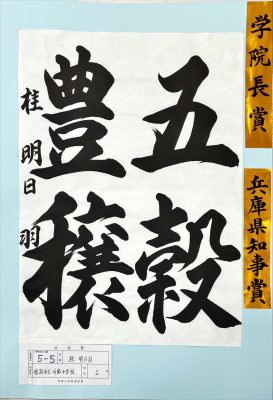 学院長賞
兵庫県知事賞
五穀
豊穣
桂明日羽
5-5
2